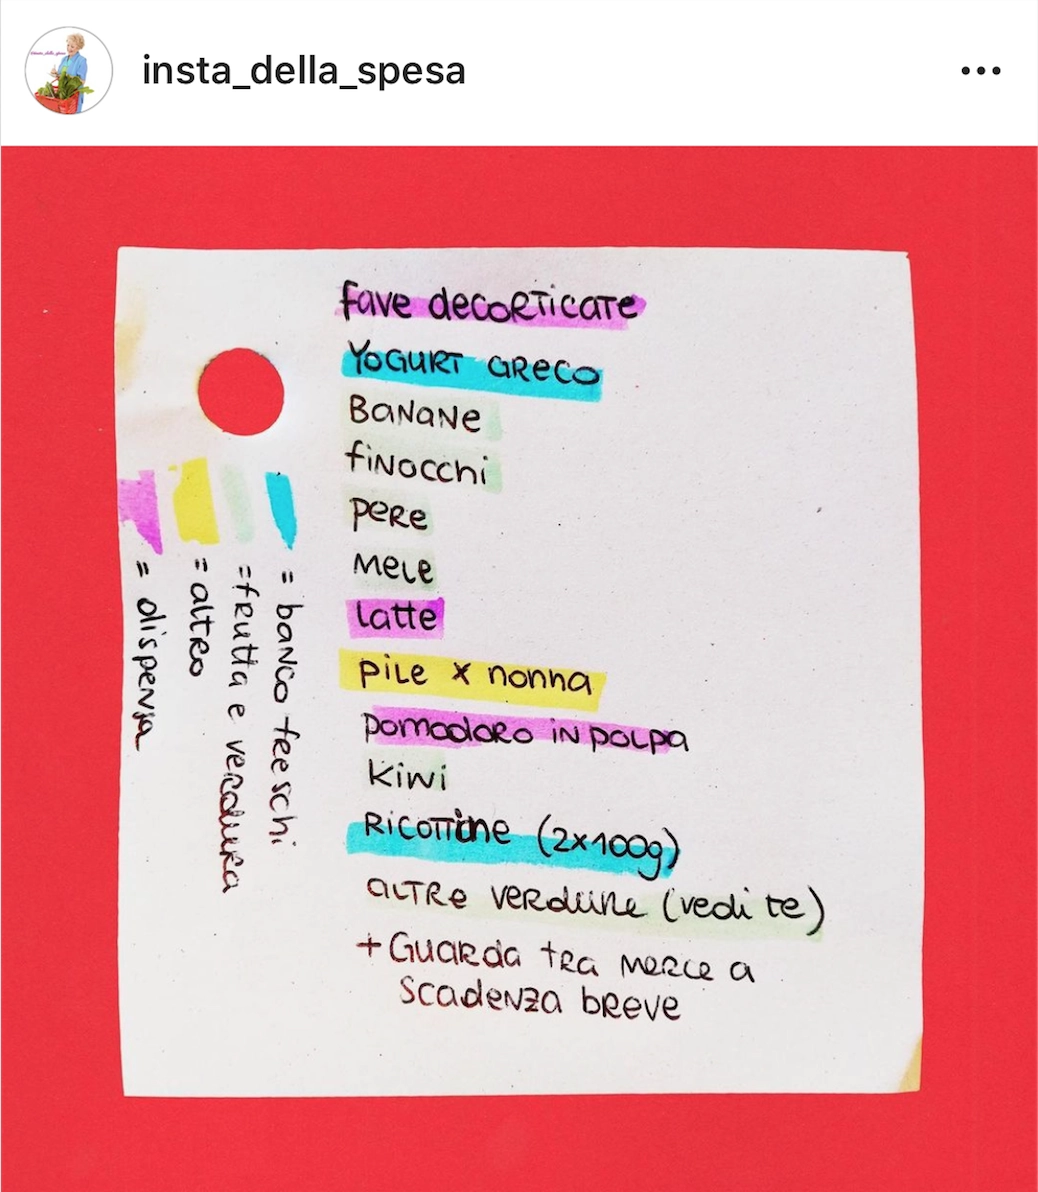 insta_della_spesa
fave decorticate
YOGURT GRECO
BANANE
finocchi
PERE
MELE
Latte
PILE x nonna
POMODORO IN POLPA
Kiwi
RICOTTINE (2x100g)
ALTRE VERDURE (vedi te)
+ GUARDA TRA MERCE A
SCADENZA BREVE
= banco freschi
= frutta e verdura
= altro
= dispensa